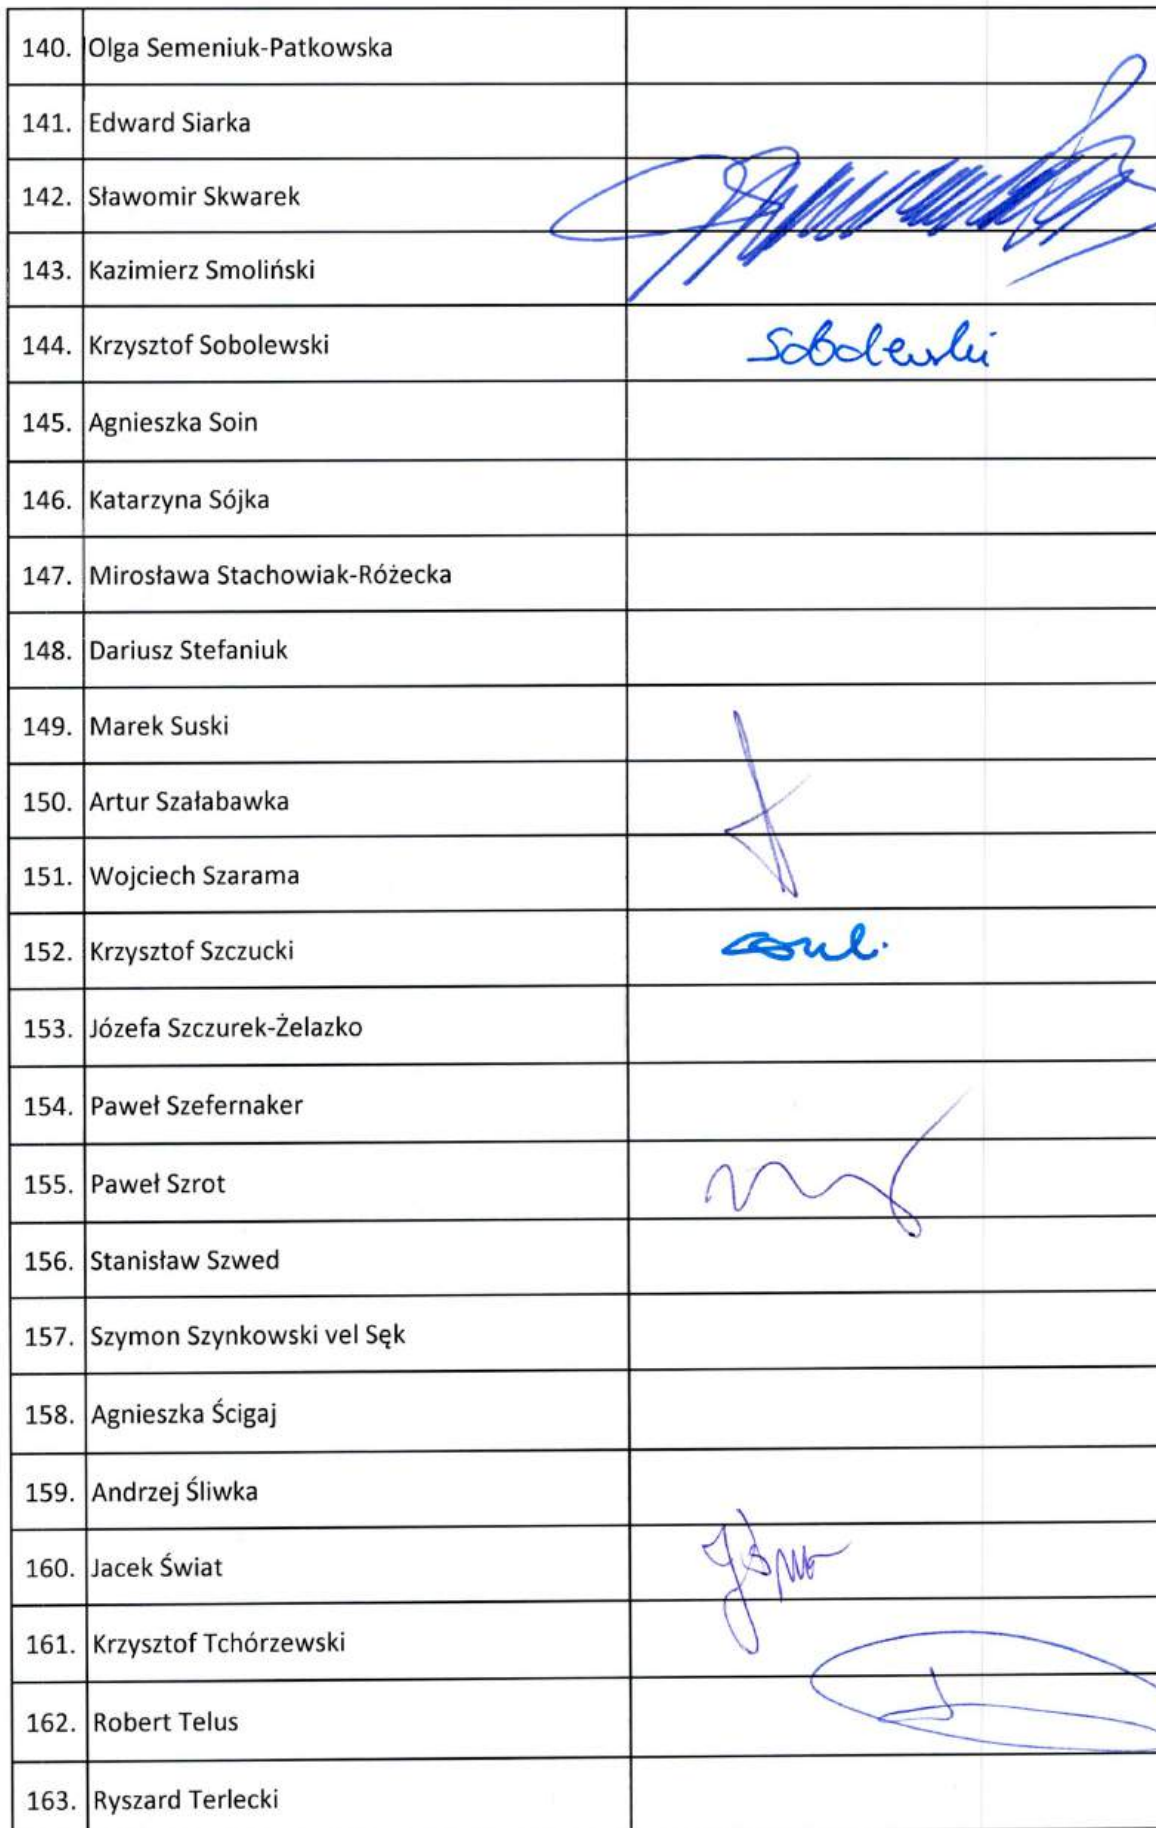 140. Olga Semeniuk-Patkowska
141. Edward Siarka
142. Sławomir Skwarek
143. Kazimierz Smoliński
144. Krzysztof Sobolewski Sobolewski
145. Agnieszka Soin
146. Katarzyna Sójka
147. Mirosława Stachowiak-Różecka
148. Dariusz Stefaniuk
149. Marek Suski
150. Artur Szałabawka
151. Wojciech Szarama
152. Krzysztof Szczucki
153. Józefa Szczurek-Żelazko
154. Paweł Szefernaker
155. Paweł Szrot
156. Stanisław Szwed
157. Szymon Szynkowski vel Sęk
158. Agnieszka Ścigaj
159. Andrzej Śliwka
160. Jacek Świat
161. Krzysztof Tchórzewski
162. Robert Telus
163. Ryszard Terlecki